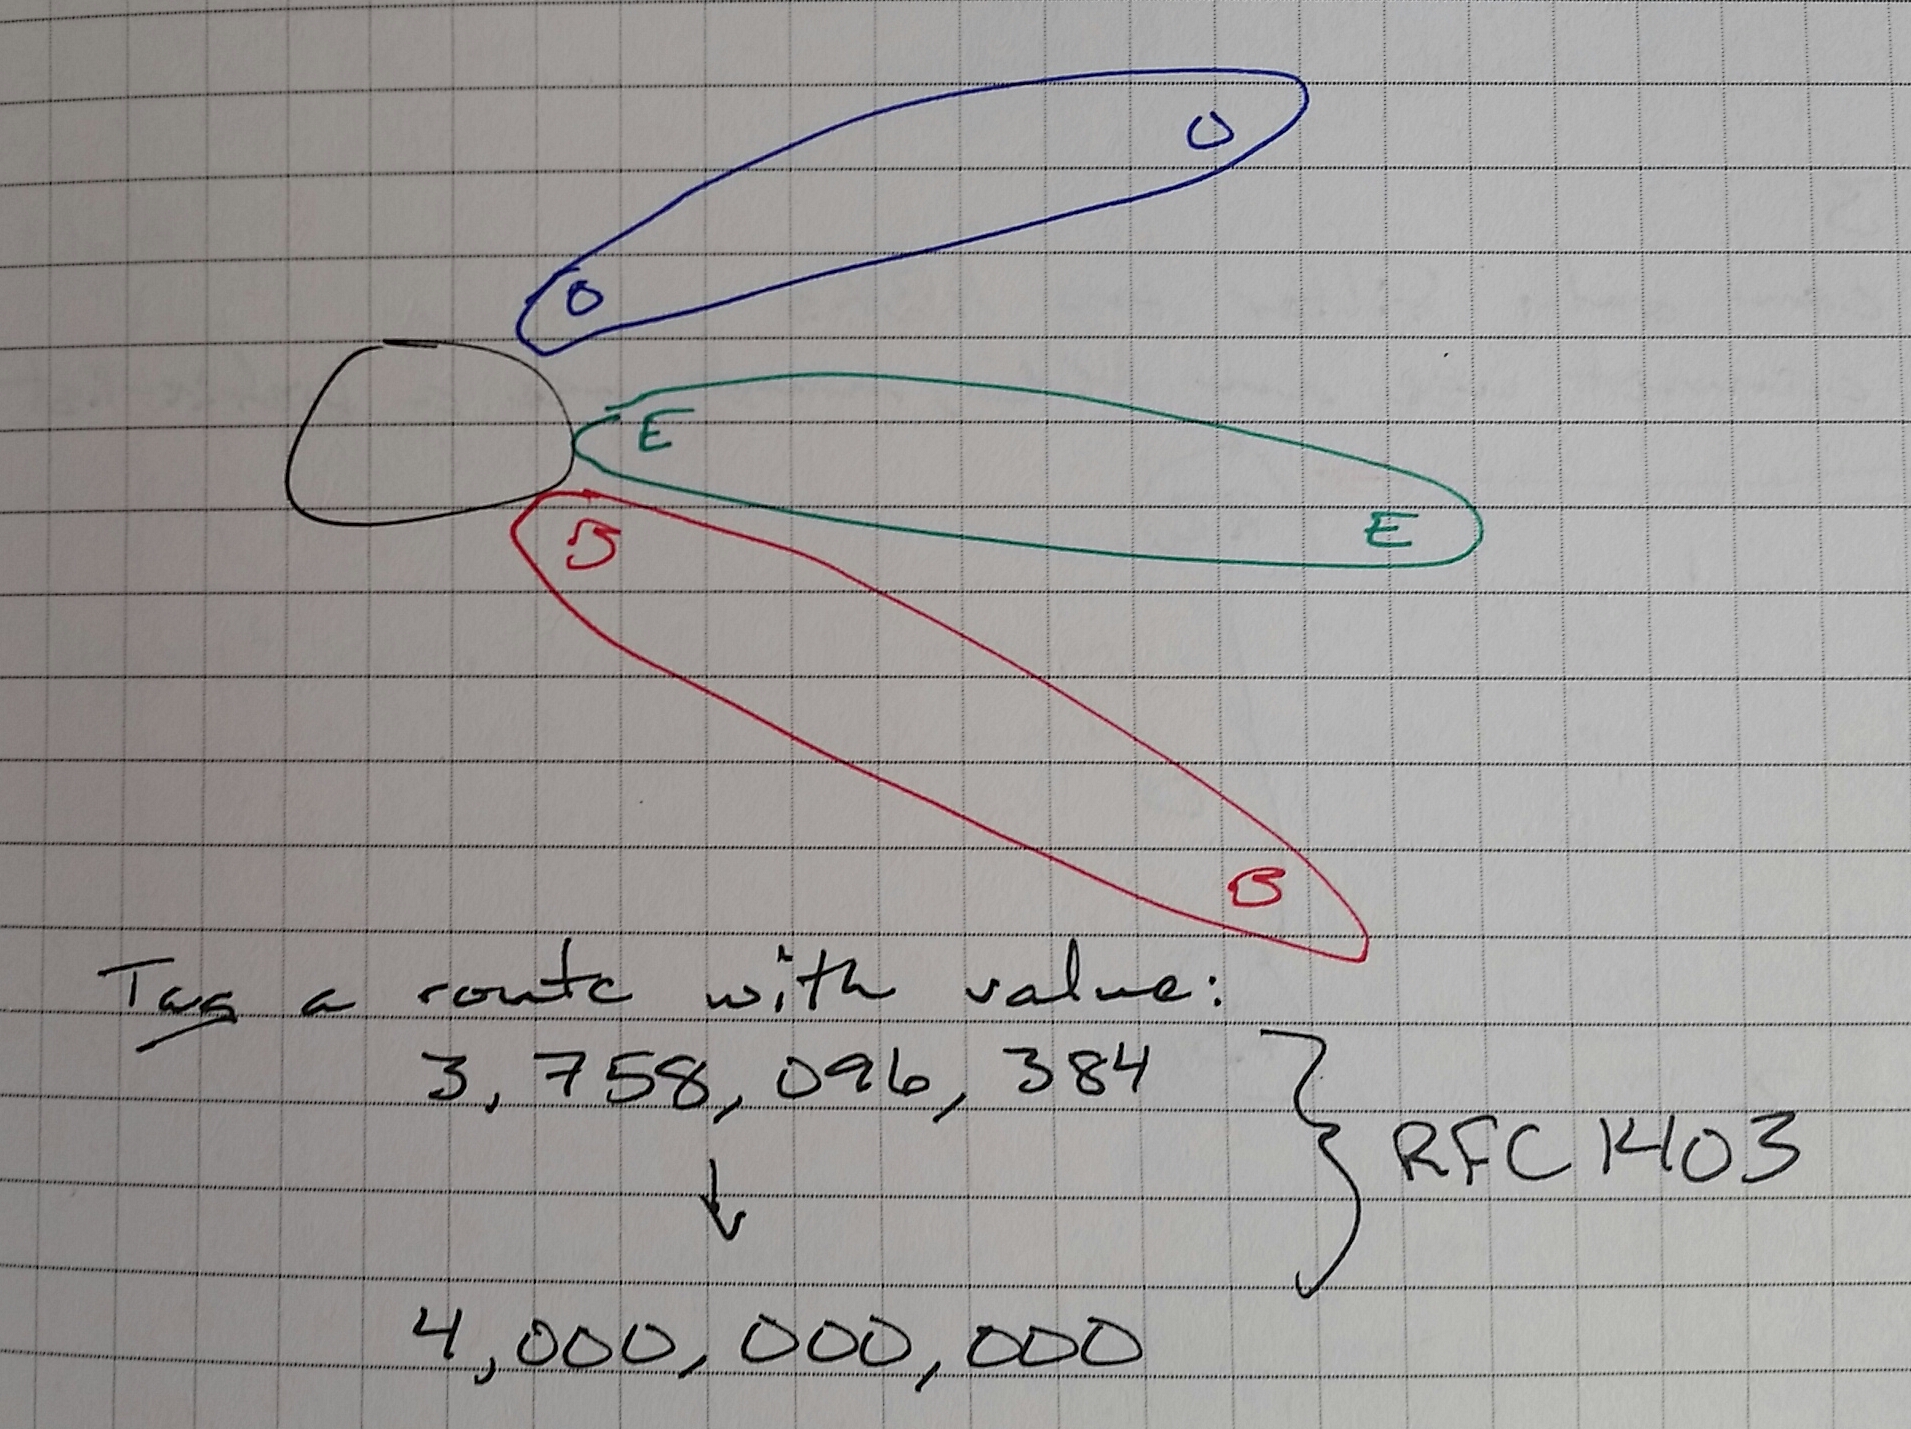 O
O
E
E
B
B
Tag a route with value:
3,758,096,384
↓
4,000,000,000
RFC 1403